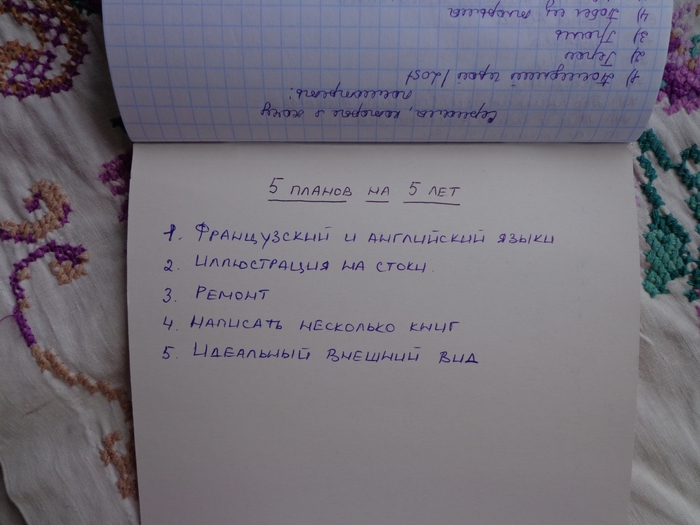 Сериалы, которые я хочу
посмотреть:
1) Последний герой / Lost
2) Герои
3) Грань
4) Побег из тюрьмы
5 ПЛАНОВ НА 5 ЛЕТ
1. ФРАНЦУЗСКИЙ И АНГЛИЙСКИЙ ЯЗЫКИ
2. ИЛЛЮСТРАЦИЯ НА СТОКИ.
3. РЕМОНТ
4. НАПИСАТЬ НЕСКОЛЬКО КНИГ
5. ИДЕАЛЬНЫЙ ВНЕШНИЙ ВИД